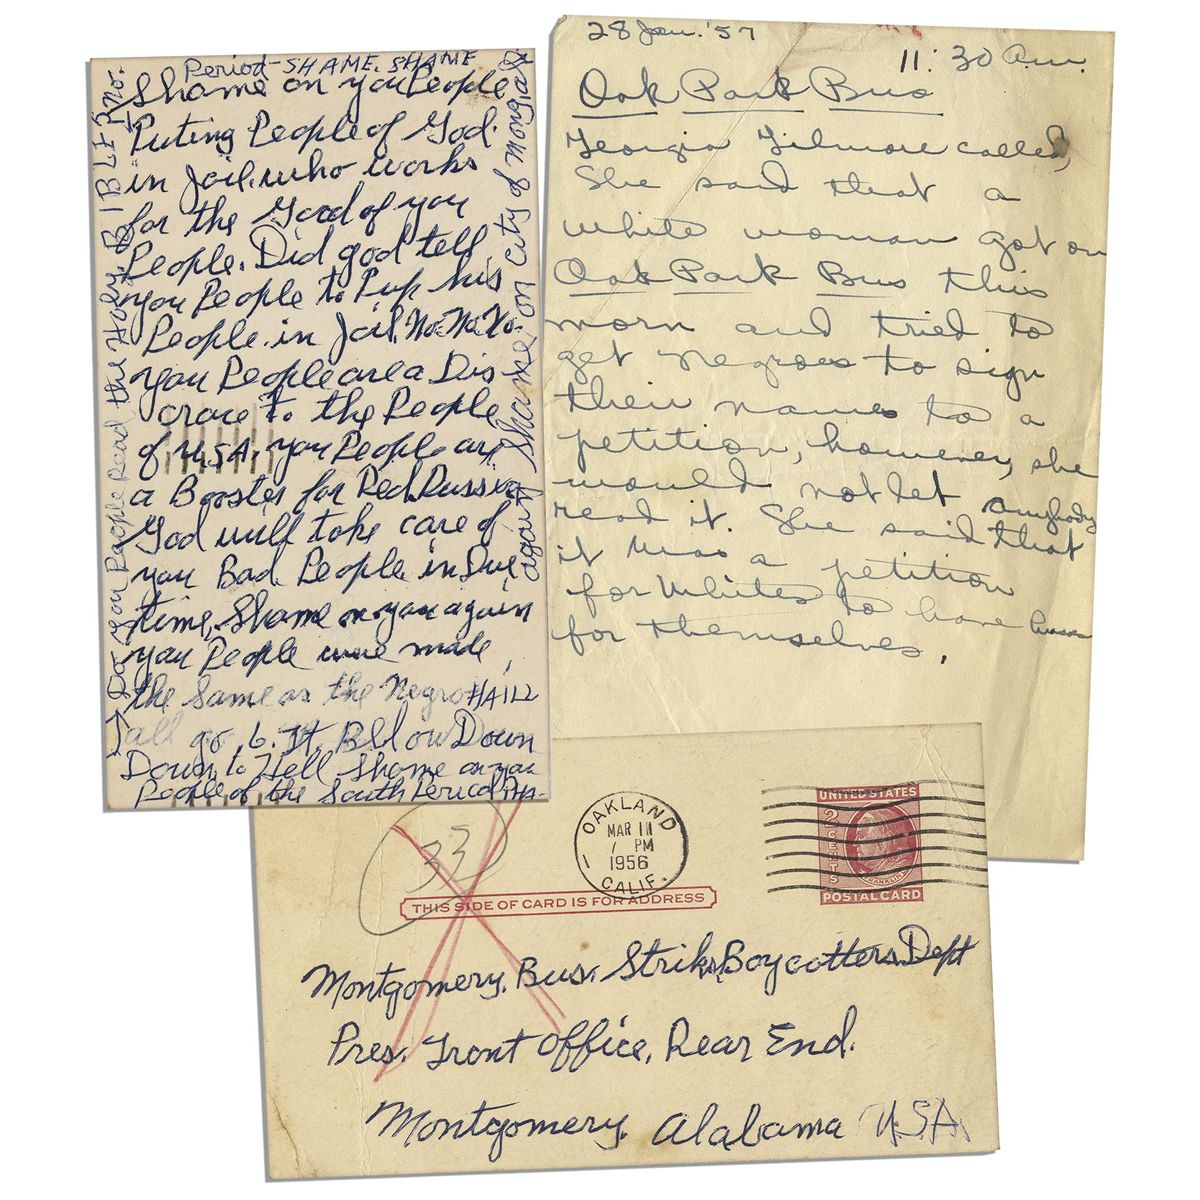 Period- SHAME. SHAME
Shame on you People
Puting People of God.
in Jail. who works
for the Good of you
People. Did god tell
you People to Put his
People. in Jail. No. No. No.
you People are a Dis
crace To the People
of U.S.A. you People are
a Booster for Red. Russia
God will take care of
you Bad. People. in Due
time, Shame on you again
you People were made
the same as the Negro HAILL
all go 6. Ft. Bllow Down
Down, to Hell Shame on you
People of the South Period
→ Do you People Read the Holy. BIBLE? No.
again Shame on City of
28 Jan. '57
11:30 A.M.
Oak Park Bus
Georgia Gilmore called,
She said that a
white woman got on
Oak Park Bus this
morn and tried to
get negroes to sign
their names to a
petition, however, she
would not let anybody
read it. She said that
it was a petition
for Whites to have buses
for themselves.
33
OAKLAND
MAR 11
7 PM
1956
CALIF.
UNITED STATES
2 CENTS
FRANKLIN
POSTAL CARD
THIS SIDE OF CARD IS FOR ADDRESS
Montgomery. Bus. Strike, Boycotters. Dept
Pres. Front Office, Rear End.
Montgomery. Alabama U.S.A.